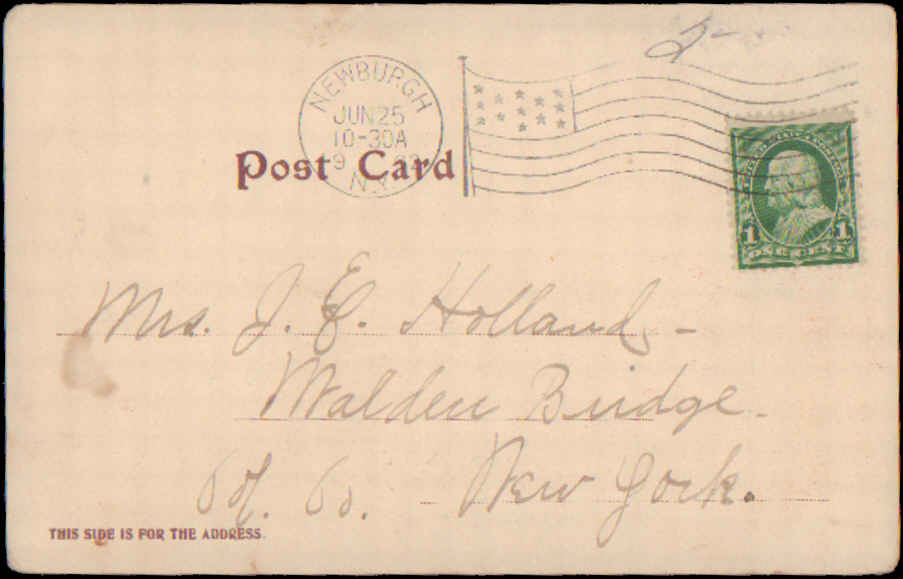 NEWBURGH
JUN 25
10-30A
N.Y.
Post Card
1 1
ONE CENT
Mrs. J. E. Holland -
Walden Bridge.
New York.
THIS SIDE IS FOR THE ADDRESS.